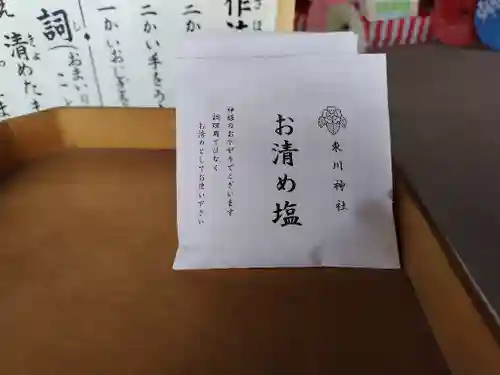 作法
二か
二かい手をう
一かいおじぎを
詞
(おまい
こと
清めたま
きよ
東川神社
お清め塩
神様のおさがりでございます
調理用ではなく
お清めとしてお使い下さい